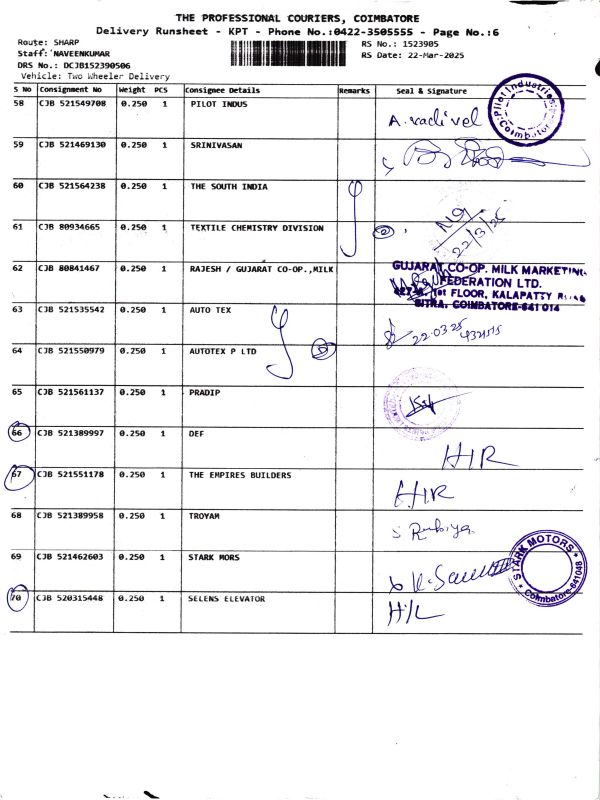 THE PROFESSIONAL COURIERS, COIMBATORE
Delivery Runsheet - KPT - Phone No.:0422-3505555 - Page No.:6
Route: SHARP
Staff: NAVEENKUMAR
DRS No.: DCJB152390506
Vehicle: Two Wheeler Delivery
RS No.: 1523905
RS Date: 22-Mar-2025
S No Consignment No Weight PCS Consignee Details Remarks Seal & Signature
58 CJB 521549708 0.250 1 PILOT INDUS A. Vadivel
Pilot Industries Coimbatore
59 CJB 521469130 0.250 1 SRINIVASAN
60 CJB 521564238 0.250 1 THE SOUTH INDIA
61 CJB 80934665 0.250 1 TEXTILE CHEMISTRY DIVISION
22/3/25
62 CJB 80841467 0.250 1 RAJESH / GUJARAT CO-OP.,MILK
GUJARAT CO-OP. MILK MARKETING
FEDERATION LTD.
1st FLOOR, KALAPATTY
SITRA, COIMBATORE-641 014
63 CJB 521535542 0.250 1 AUTO TEX
22.03.25
64 CJB 521550979 0.250 1 AUTOTEX P LTD
65 CJB 521561137 0.250 1 PRADIP
66 CJB 521389997 0.250 1 DEF H/R
67 CJB 521551178 0.250 1 THE EMPIRES BUILDERS H/R
68 CJB 521389958 0.250 1 TROYAM S Rubiya
69 CJB 521462603 0.250 1 STARK MORS
STARK MOTORS Coimbatore-641048
70 CJB 520315448 0.250 1 SELENS ELEVATOR H/L